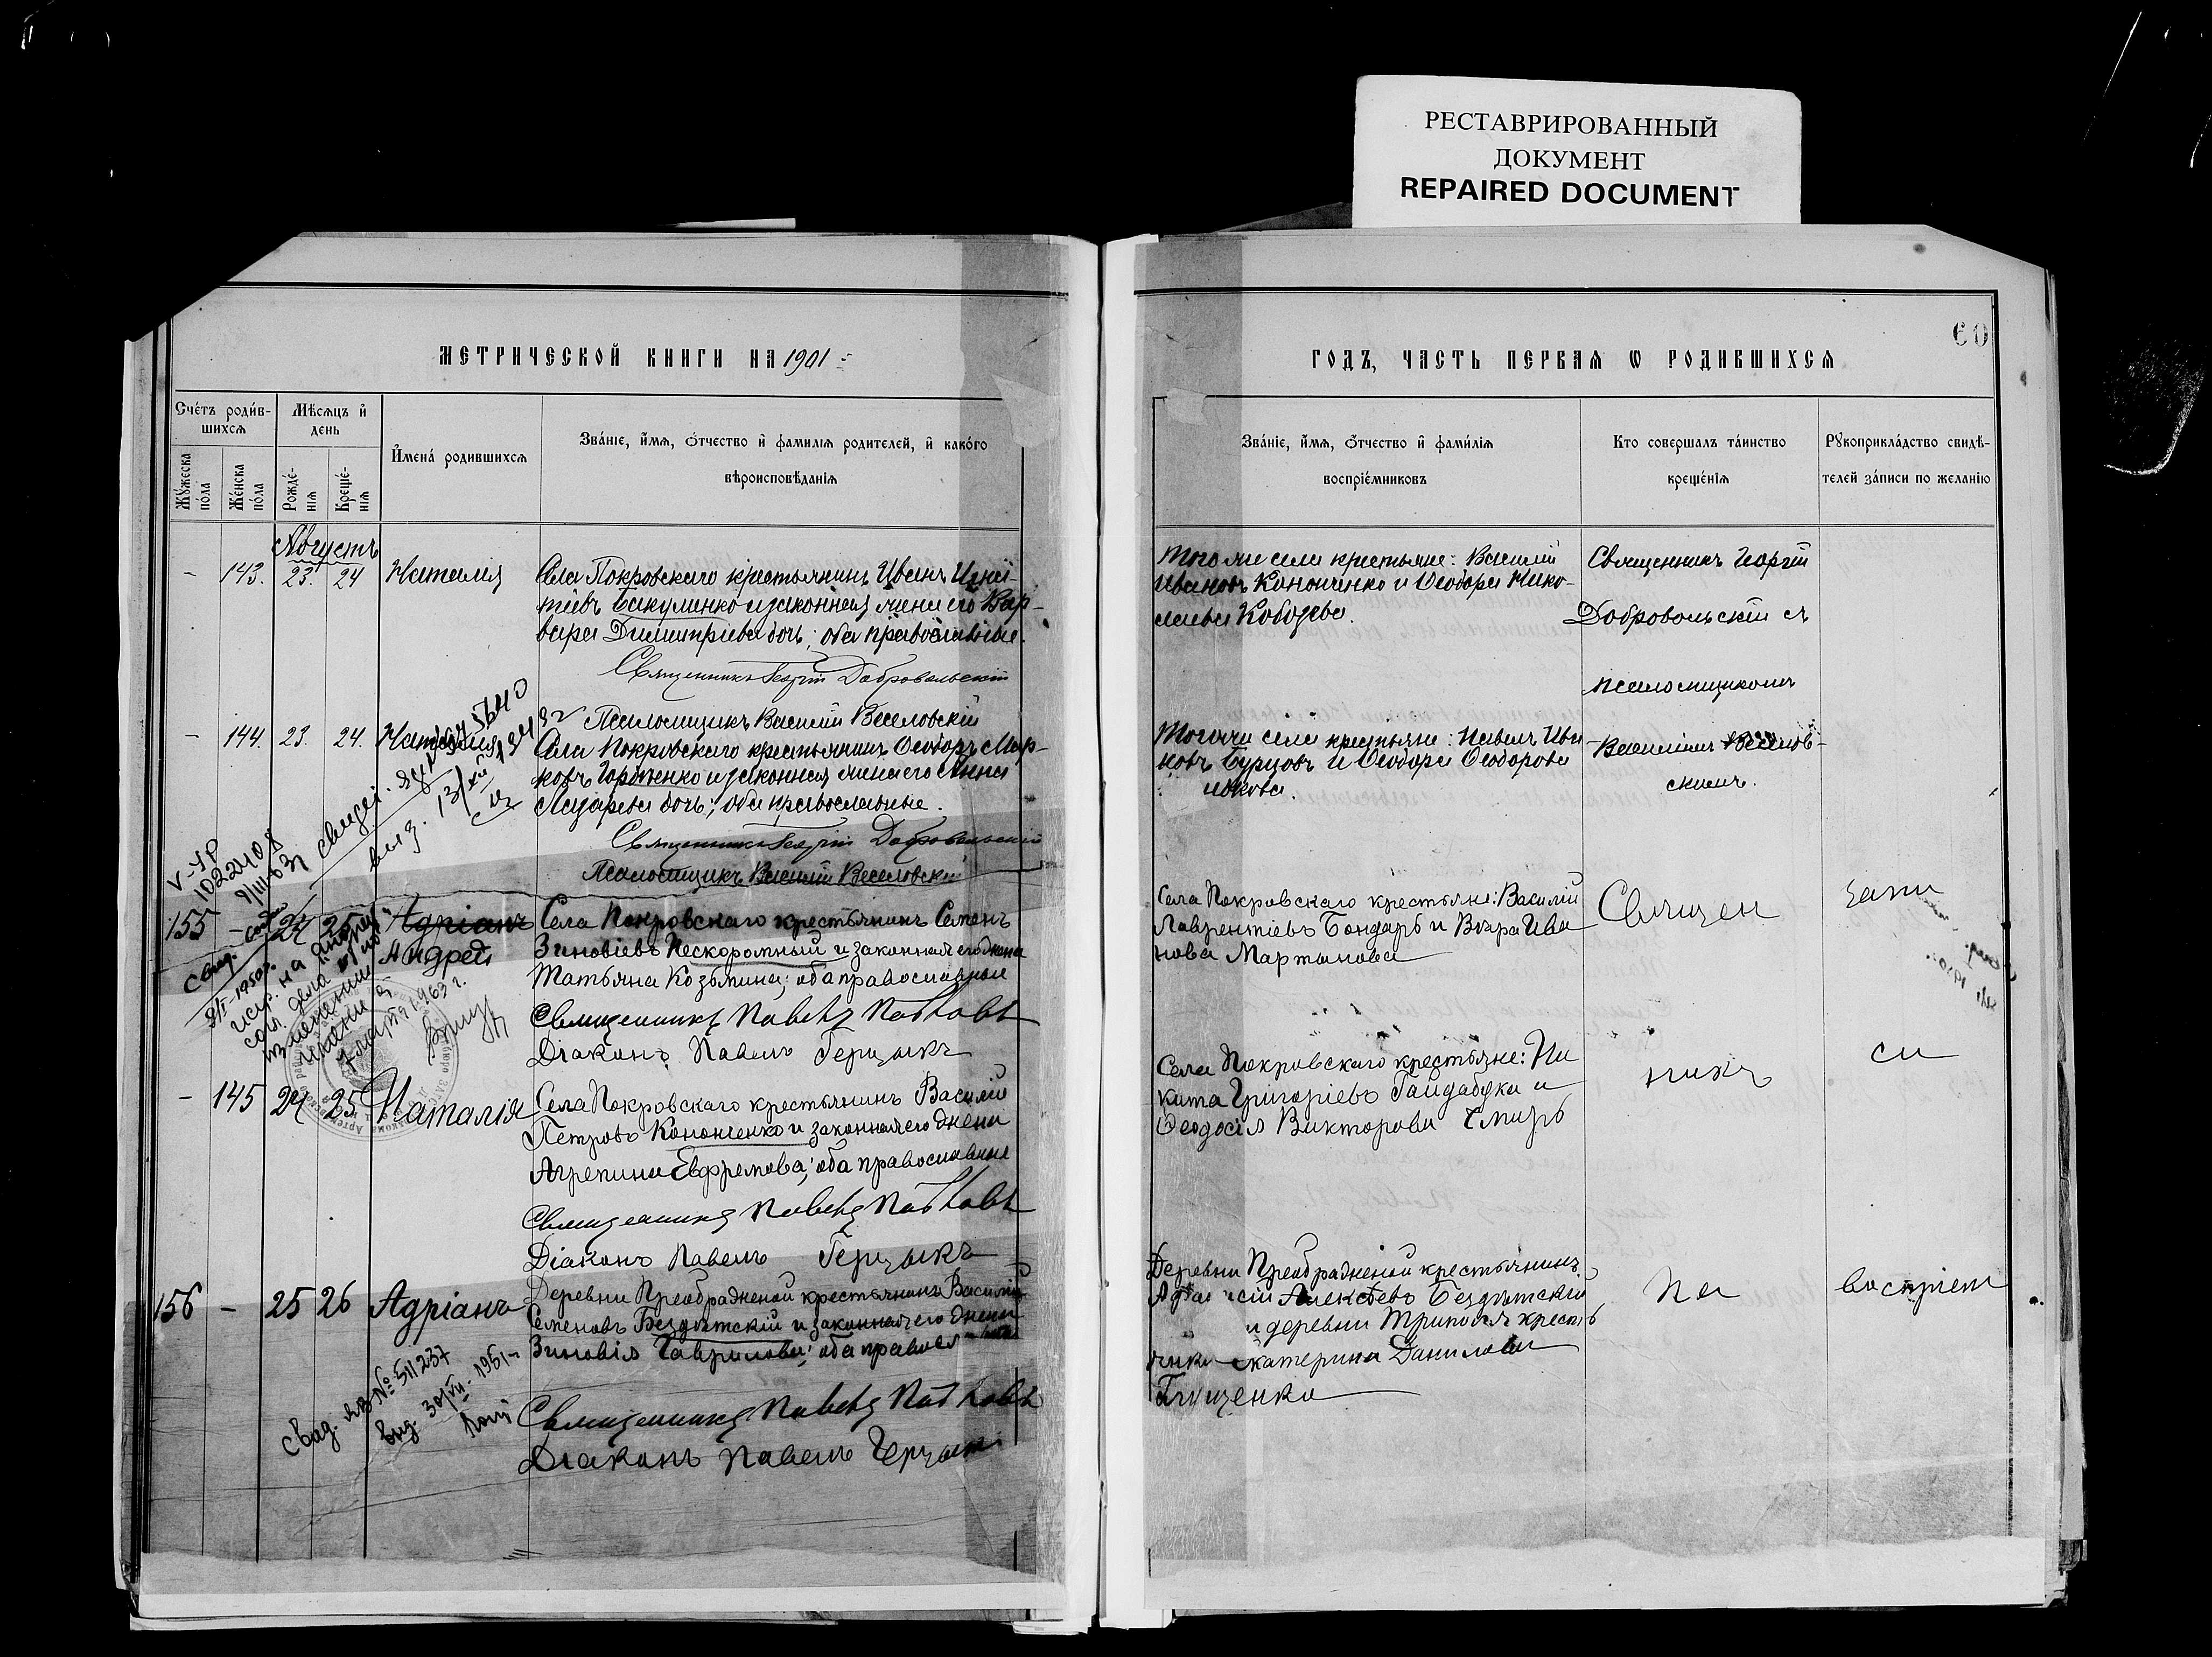 РЕСТАВРИРОВАННЫЙ
ДОКУМЕНТ
REPAIRED DOCUMENT
60
МЕТРИЧЕСКОЙ КНИГИ НА 1901
ГОДЪ, ЧАСТЬ ПЕРВАЯ Ѡ РОДИВШИХСЯ
Счетъ родив-
шихся
Мѣсяцъ и
день
Мужеска
пола
Женска
пола
Рожде-
нія
Креще-
нія
Имена родившихся
Званіе, имя, отчество и фамилія родителей, и какого
вѣроисповѣданія
Званіе, имя, отчество и фамилія
воспріемниковъ
Кто совершалъ таинство
крещенія
Рукоприкладство свидѣ-
телей записи по желанію
Августъ
- 143. 23. 24 Наталія
Села Покровскаго крестьянинъ Иванъ Игна-
тіевъ Бакуменко и законная жена его Вар-
вара Димитріева дочь; оба православные.
Священникъ Георгій Добровольскій
Псаломщикъ Василій Веселовскій
Того же села крестьяне: Василій
Ивановъ Кононченко и Ѳеодора Нико-
лаева Кобозева.
Священникъ Георгій
Добровольскій съ
псаломщикомъ
Василіемъ Веселов-
скимъ.
- 144. 23. 24. Наталія
Села Покровскаго крестьянинъ Ѳеодоръ Мар-
ковъ Гордженко и законная жена его Анна
Лазарева дочь; оба православные.
Священникъ Георгій Добровольскій
Псаломщикъ Василій Веселовскій
Того же села крестьяне: Павелъ Ива-
новъ Бурцовъ и Ѳеодора Ѳеодорова
свидет.
выд. 13/XII
V-УР
1022408
155 - 24 25 Адріанъ
Андрей
Села Покровскаго крестьянинъ Семенъ
Зиновіевъ Нескоромный и законная его жена
Татьяна Козьмина; оба православные
Священникъ Павелъ
Діаконъ Павелъ Герцыкъ
Села Покровскаго крестьяне: Василій
Лаврентіевъ Бондарь и Вѣра Ива
нова Мартынова
Священ
никъ
Па
запи
си
воспріем
свид.
испр. на Андрей
согл. дела
изменении
имени
7 марта 1963 г.
- 145 24 25 Наталія
Села Покровскаго крестьянинъ Василій
Петровъ Кононченко и законная его жена
Агрепина Евфремова; оба православные
Священникъ Павелъ
Діаконъ Павелъ Герцыкъ
Села Покровскаго крестьяне: Ни
кита Григоріевъ Гайдабука и
Ѳеодосія Викторова Смиръ
156 - 25 26 Адріанъ
Деревни Преображеной крестьянинъ Василій
Семеновъ Бездѣтскій и законная его жена
Зиновія Гаврилова; оба правосл
Священникъ Павелъ
Діаконъ Павелъ Герцыкъ
Деревни Преображеной крестьянинъ
Алексѣевъ Бездѣтскій
и деревни Триполя кресть
янка Екатерина Данилова
Глущенко
Свид. ЯЗ № 511237
выд. 30/VII-1951